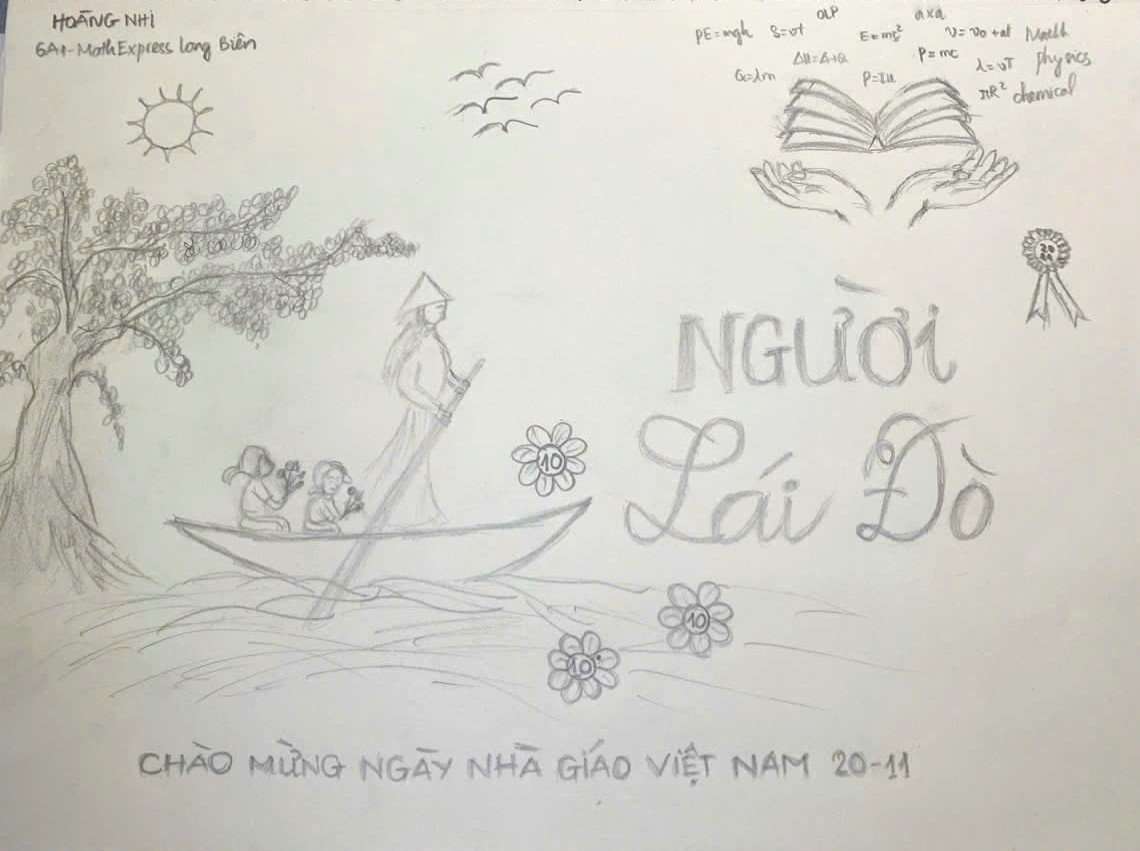 HOÀNG NHI
6A1-MathExpress Long Biên
PE=mgh S=vt
E=mc² axa
V=v₀+at Math
P=mc
λ=vT physics
πR² chemical
20
10
10
10
NGƯỜI
Lái Đò
CHÀO MỪNG NGÀY NHÀ GIÁO VIỆT NAM 20-11